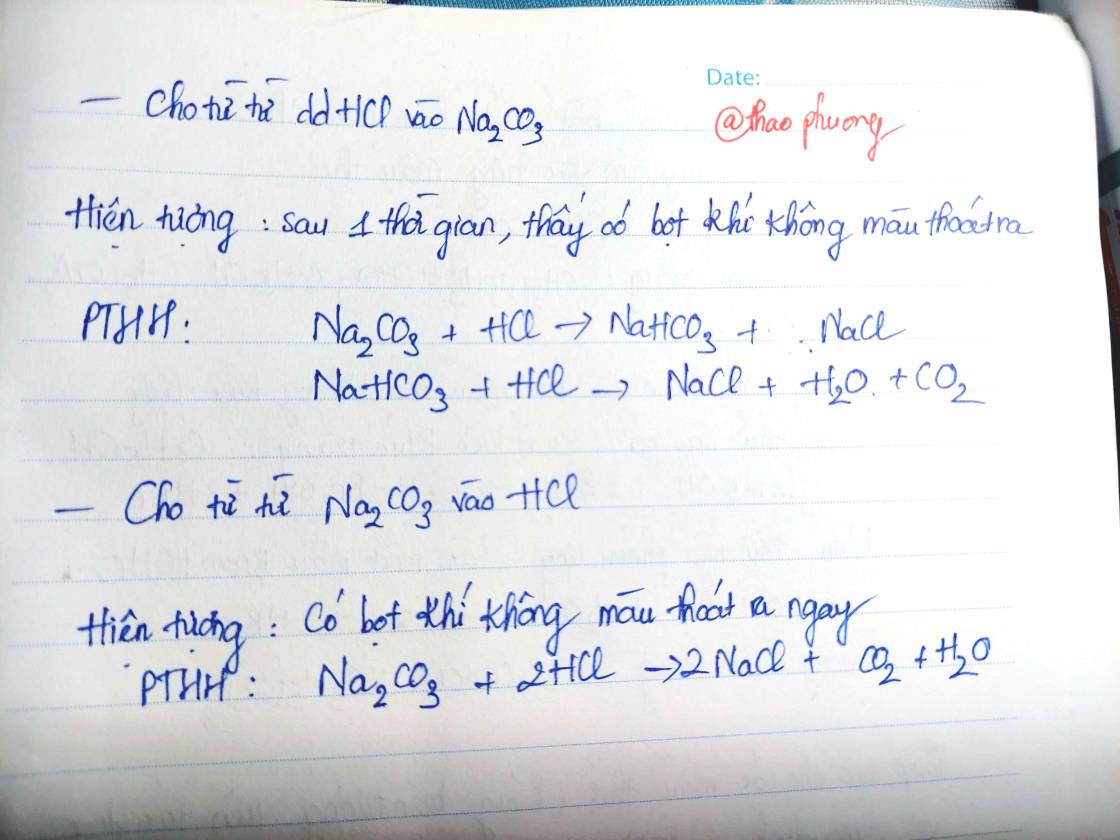 Date:
@thao phuong
— Cho từ từ dd HCl vào Na₂CO₃
Hiện tượng : sau 1 thời gian, thấy có bọt khí không màu thoát ra
PTHH: Na₂CO₃ + HCl → NaHCO₃ + NaCl
NaHCO₃ + HCl → NaCl + H₂O + CO₂
— Cho từ từ Na₂CO₃ vào HCl
Hiện tượng : Có bọt khí không màu thoát ra ngay
PTHH : Na₂CO₃ + 2HCl → 2NaCl + CO₂ + H₂O